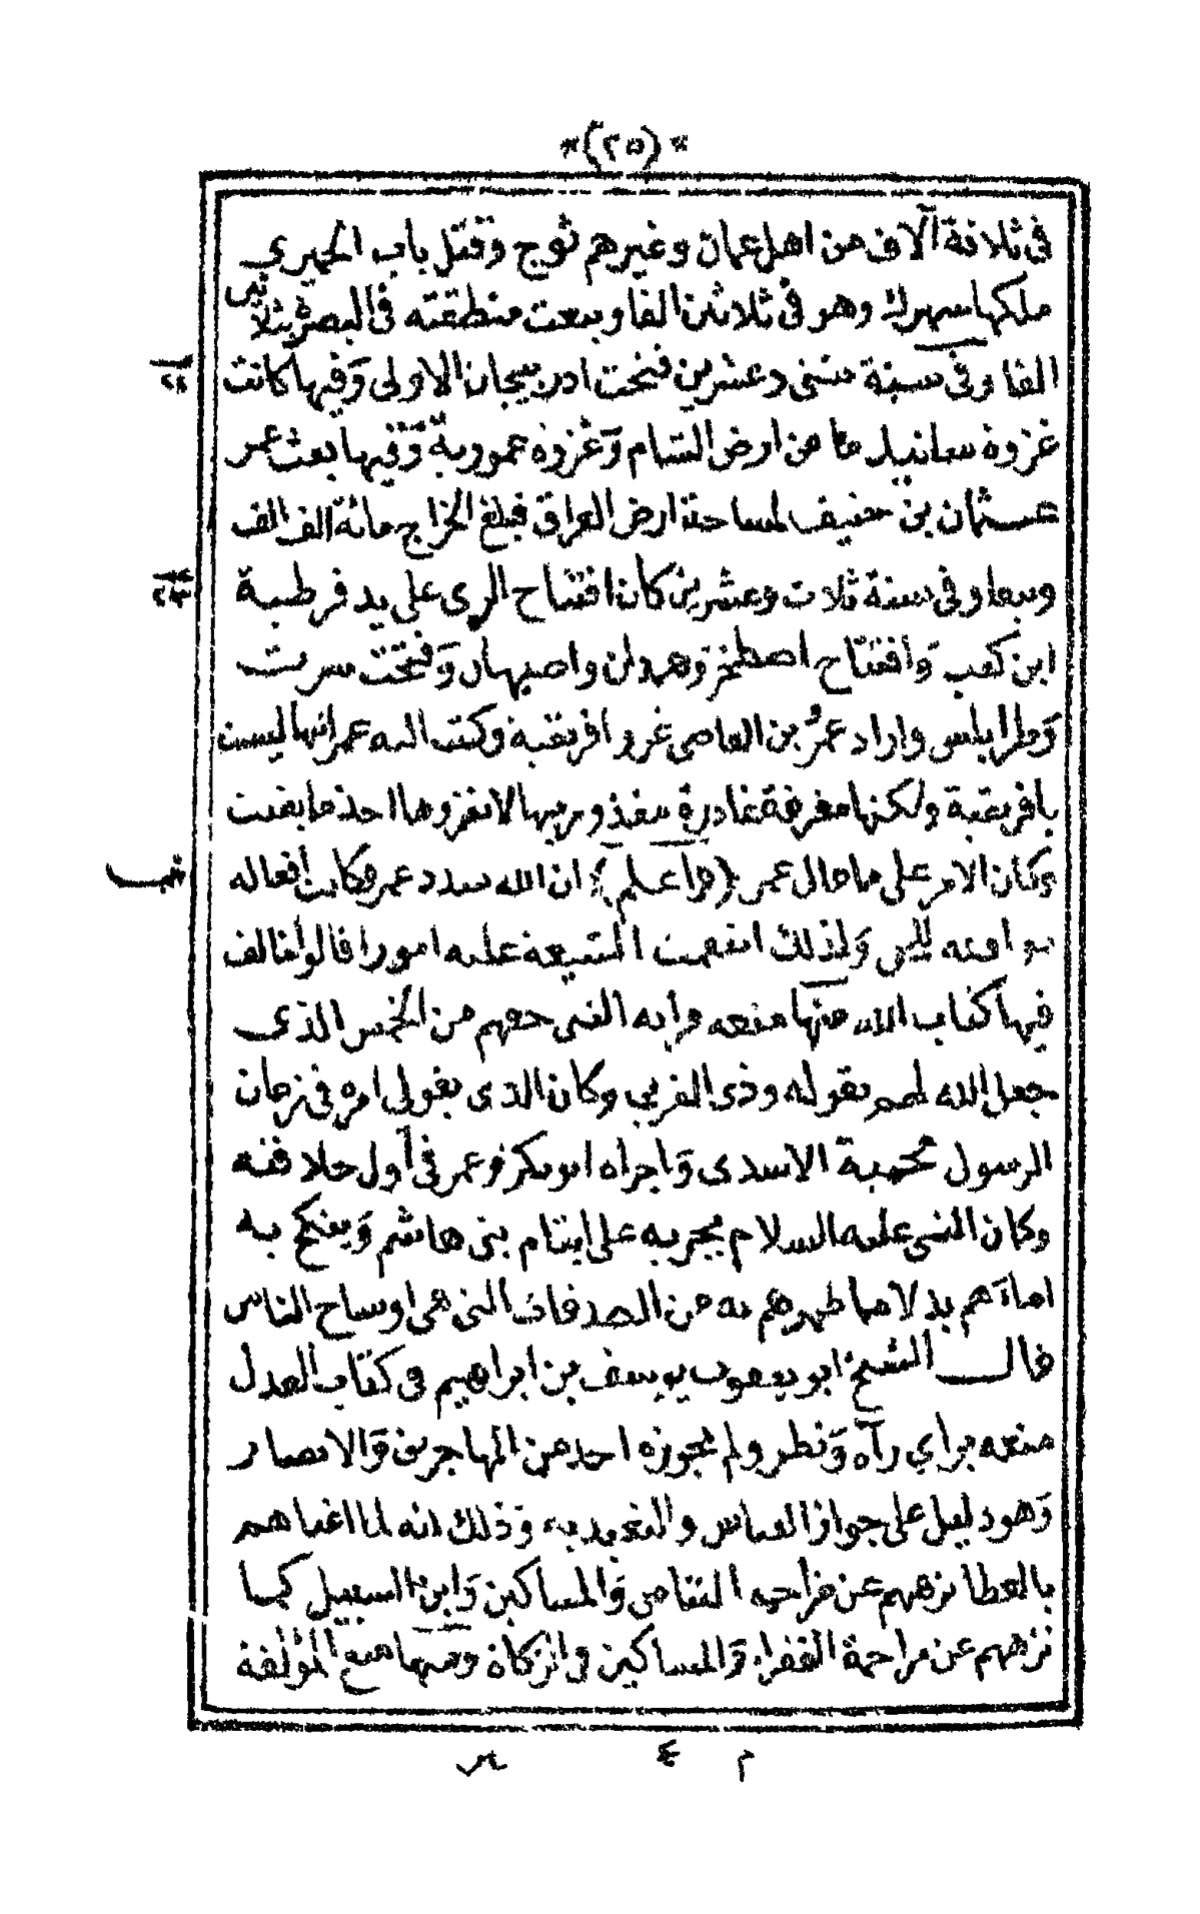 *(٢٥)*
فى ثلاثة آلاف من اهل عمان وغيرهم توج وقتل باب الحميرى
ملكها سهرك وهو فى ثلاثين الفا وبيعت منطقته فى البصرة بثلاثين
الفا وفى سنة ثنتى وعشرين فتحت ادربيجان الاولى وفيها كانت
٢٢
غزوة ما من ارض الشام وغزوة عمورية وفيها بعث عمر
عثمان بن حنيف لمساحة ارض العراق فبلغ الخراج مائة الف الف
ونيفا وفى سنة ثلاث وعشرين كان افتتاح الرى على يد قرطبة
٢٣
ابن كعب وافتتاح اصطخر وهمدان واصبهان وفتحت سرت
وطرابلس واراد عمرو بن العاصى غزو افريقية وكتب اليه عمر انها ليست
بافريقية ولكنها مفرقة غادرة مغدور بها لا تغزوها احد ما بقيت
وكان الامر على ما قال عمر (واعلم) ان الله سدد عمر فكانت أفعاله
تنبيه
موافقة للحق ولذلك انتقمت الشيعة عليه امورا قالوا خالف
فيها كتاب الله منها منعه قرابة النبى حقهم من الخمس الذى
جعل الله لهم بقوله وذى القربى وكان الذى يتولى امره فى زمان
الرسول محمية الاسدى واجراه ابو بكر وعمر فى أول خلافته
وكان النبى عليه السلام يجريه على ايتام بنى هاشم وينكح به
اماءهم بدلا مما طهرهم به من الصدقات التى هى اوساخ الناس
قال الشيخ ابو يعقوب يوسف بن ابراهيم فى كتاب العدل
منعه براي رآه ونظر ولم يجوزه احد من المهاجرين والانصار
وهو دليل على جواز القياس والتعبد به وذلك انه لما اغناهم
بالعطا نزههم عن مزاحمة اليتامى والمساكين وابن السبيل كما
نزههم عن مزاحمة الفقراء والمساكين فى الزكاة ومنها منع المؤلفة
م ٤ سر